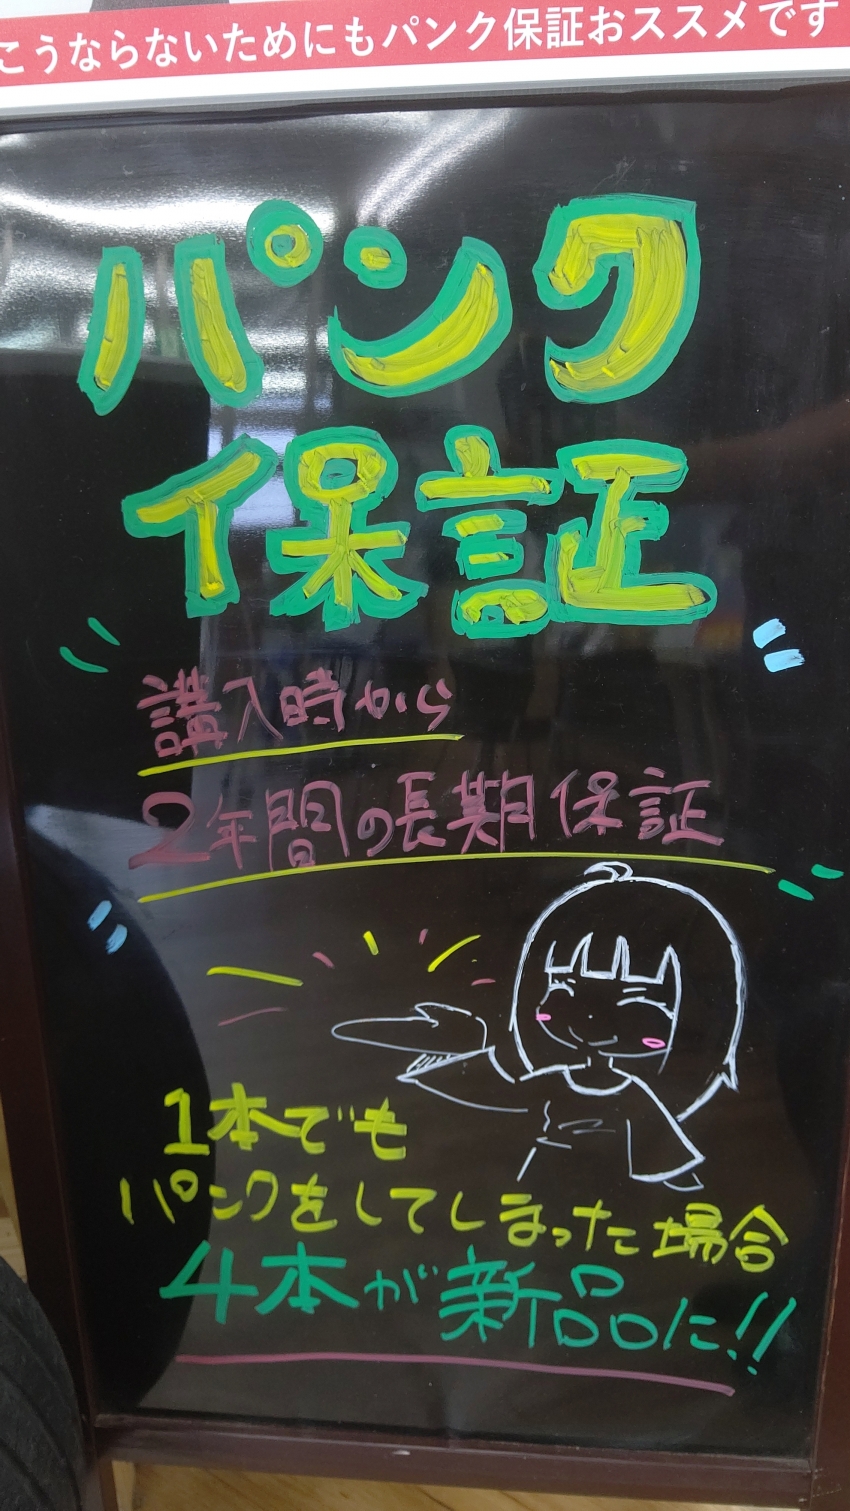 こうならないためにもパンク保証おススメです
パンク
保証
講入時から
2年間の長期保証
1本でも
パンクをしてしまった場合
4本が新品に!!